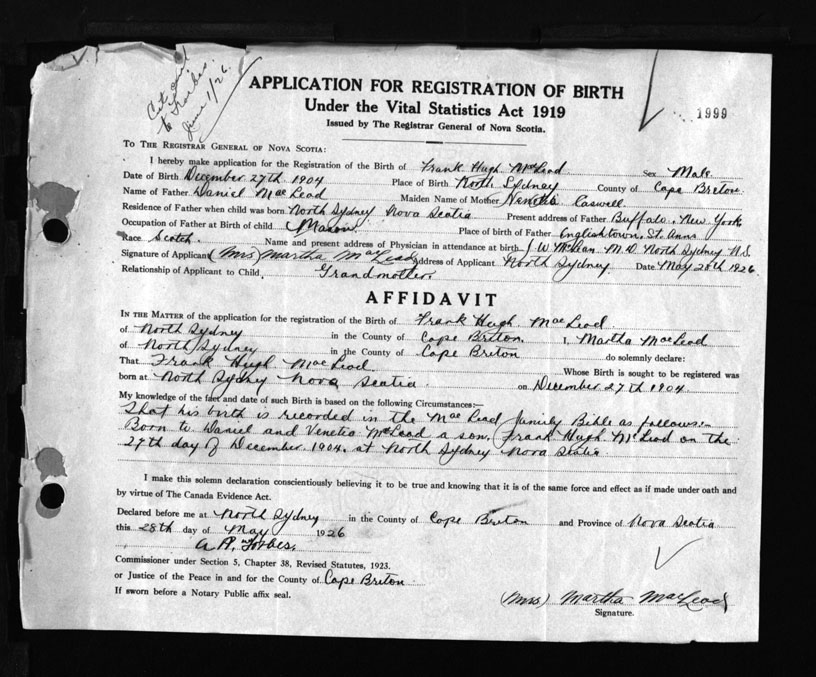 Cert. sent
to Forbes.
June 1/26.
APPLICATION FOR REGISTRATION OF BIRTH
Under the Vital Statistics Act 1919
Issued by The Registrar General of Nova Scotia.
1999
To The Registrar General of Nova Scotia:
I hereby make application for the Registration of the Birth of Frank Hugh McLeod Sex Male
Date of Birth December 27th 1904 Place of Birth North Sydney County of Cape Breton
Name of Father Daniel MacLeod Maiden Name of Mother Venetia Caswell
Residence of Father when child was born North Sydney Nova Scotia Present address of Father Buffalo, New York
Occupation of Father at Birth of child Mason Place of birth of Father Englishtown, St. Anns
Race Scotch. Name and present address of Physician in attendance at birth J W McLean M D North Sydney N.S.
Signature of Applicant (Mrs) Martha MacLeod Address of Applicant North Sydney Date May 20th 1926
Relationship of Applicant to Child Grandmother
AFFIDAVIT
In the Matter of the application for the registration of the Birth of Frank Hugh MacLeod
of North Sydney in the County of Cape Breton I, Martha MacLeod
of North Sydney in the County of Cape Breton do solemnly declare:
That Frank Hugh MacLeod Whose Birth is sought to be registered was
born at North Sydney Nova Scotia on December 27th 1904.
My knowledge of the fact and date of such Birth is based on the following Circumstances:—
That his birth is recorded in the MacLeod family Bible as follows:-
Born to Daniel and Venetia McLeod a son, Frank Hugh McLeod on the
27th day of December. 1904. at North Sydney Nova Scotia
I make this solemn declaration conscientiously believing it to be true and knowing that it is of the same force and effect as if made under oath and
by virtue of The Canada Evidence Act.
Declared before me at North Sydney in the County of Cape Breton and Province of Nova Scotia
this 28th day of May 1926
Forbes.
Commissioner under Section 5, Chapter 38, Revised Statutes, 1923.
or Justice of the Peace in and for the County of Cape Breton
If sworn before a Notary Public affix seal.
(Mrs) Martha MacLeod
Signature.